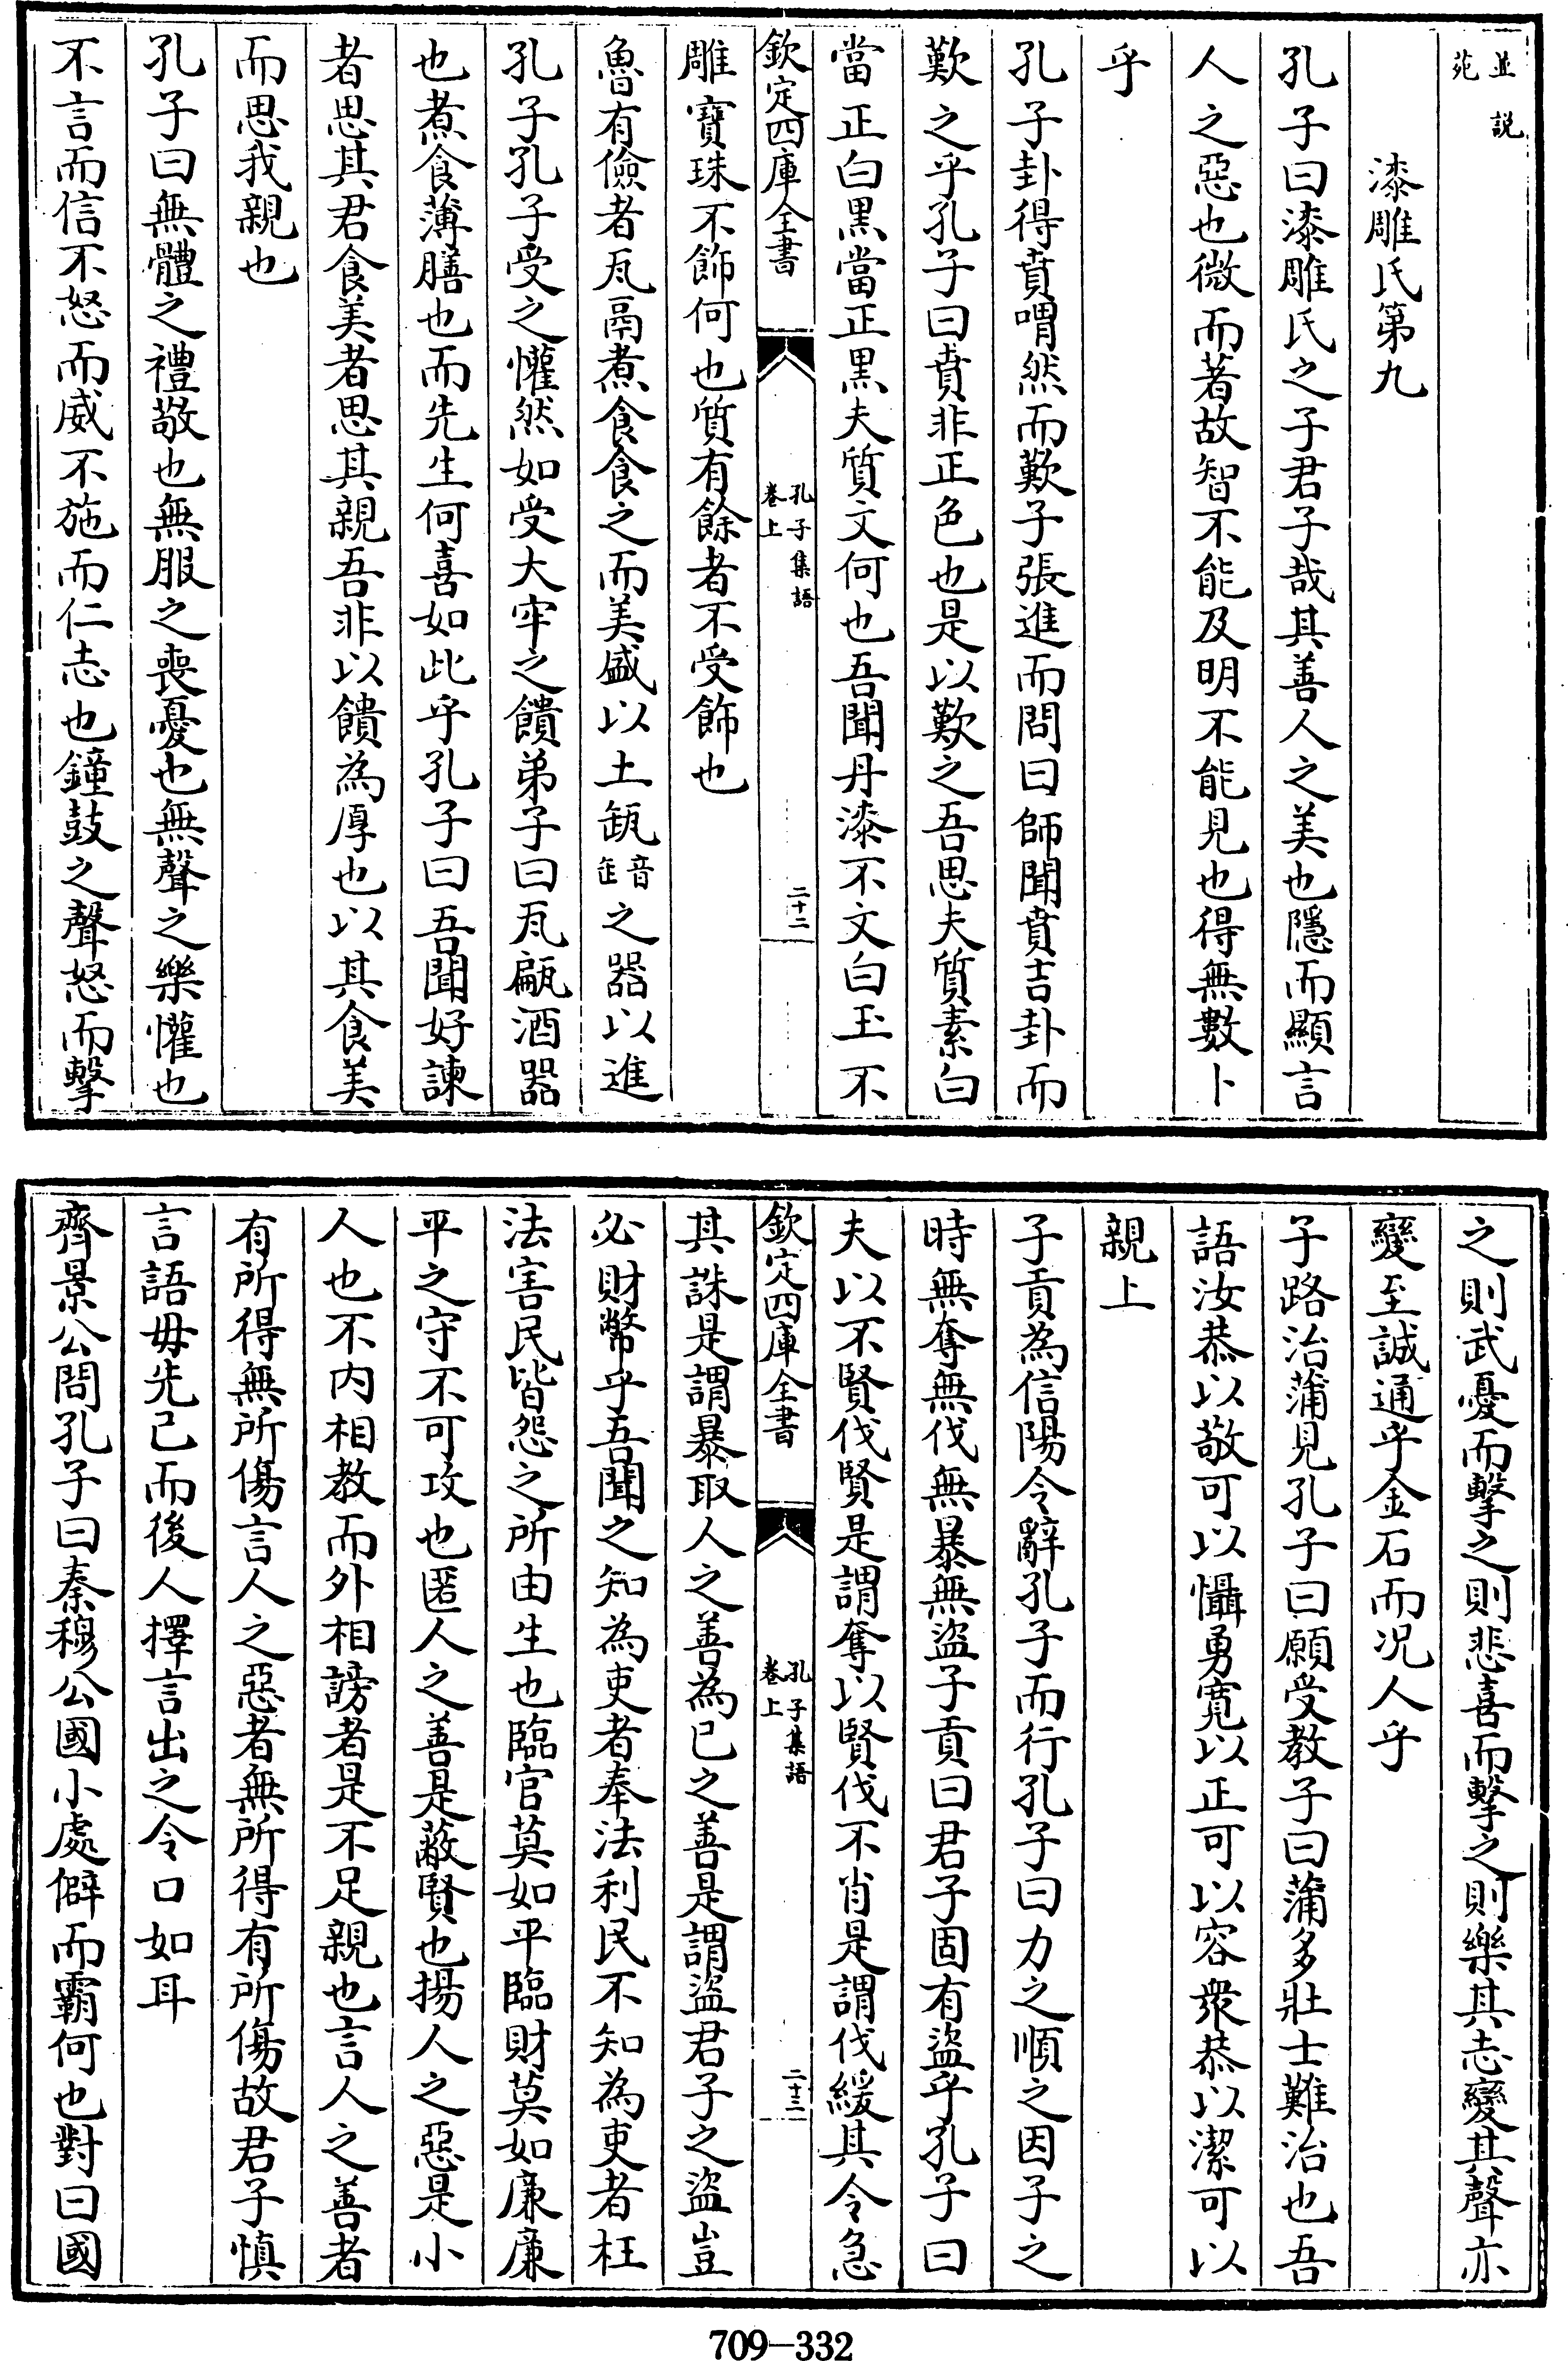 並説
苑
漆雕氏第九
孔子曰漆雕氏之子君子哉其善人之美也隱而顯言
人之惡也微而著故智不能及明不能見也得無數卜
乎
孔子卦得賁喟然而歎子張進而問曰師聞賁吉卦而
歎之乎孔子曰賁非正色也是以歎之吾思夫質素白
當正白黒當正黒夫質文何也吾聞丹漆不文白玉不
欽定四庫全書
孔子集語
卷上
二十二
雕寶珠不飾何也質有餘者不受飾也
魯有儉者瓦鬲煮食食之而美盛以土瓿音缶之器以進
孔子孔子受之懽然如受大牢之饋弟子曰瓦甂酒器
也煮食薄膳也而先生何喜如此乎孔子曰吾聞好諫
者思其君食美者思其親吾非以饋為厚也以其食美
而思我親也
孔子曰無體之禮敬也無服之喪憂也無聲之樂懽也
不言而信不怒而威不施而仁志也鐘鼓之聲怒而擊
之則武憂而擊之則悲喜而擊之則樂其志變其聲亦
變至誠通乎金石而况人乎
子路治蒲見孔子曰願受教子曰蒲多壯士難治也吾
語汝恭以敬可以懾勇寛以正可以容衆恭以潔可以
親上
子貢為信陽令辭孔子而行孔子曰力之順之因子之
時無奪無伐無暴無盜子貢曰君子固有盜乎孔子曰
夫以不賢伐賢是謂奪以賢伐不肖是謂伐緩其令急
欽定四庫全書
孔子集語
卷上
二十三
其誅是謂暴取人之善為已之善是謂盜君子之盜豈
必財幣乎吾聞之知為吏者奉法利民不知為吏者枉
法害民皆怨之所由生也臨官莫如平臨財莫如廉廉
平之守不可攻也匿人之善是蔽賢也揚人之惡是小
人也不内相教而外相謗者是不足親也言人之善者
有所得無所傷言人之惡者無所得有所傷故君子慎
言語毋先已而後人擇言出之令口如耳
齊景公問孔子曰秦穆公國小處僻而霸何也對曰國
709-332